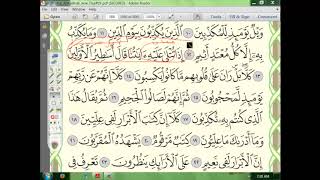 Adobe Reader
Fill & Sign
Comment
وَيْلٌ يَوْمَئِذٍ لِّلْمُكَذِّبِينَ ١٠ ٱلَّذِينَ يُكَذِّبُونَ بِيَوْمِ ٱلدِّينِ ١١ وَمَا يُكَذِّبُ
بِهِۦٓ إِلَّا كُلُّ مُعْتَدٍ أَثِيمٍ ١٢ إِذَا تُتْلَىٰ عَلَيْهِ ءَايَٰتُنَا قَالَ أَسَٰطِيرُ ٱلْأَوَّلِينَ
١٣ كَلَّا بَلْ رَانَ عَلَىٰ قُلُوبِهِم مَّا كَانُوا۟ يَكْسِبُونَ ١٤ كَلَّآ إِنَّهُمْ عَن رَّبِّهِمْ
يَوْمَئِذٍ لَّمَحْجُوبُونَ ١٥ ثُمَّ إِنَّهُمْ لَصَالُوا۟ ٱلْجَحِيمِ ١٦ ثُمَّ يُقَالُ هَٰذَا
ٱلَّذِى كُنتُم بِهِۦ تُكَذِّبُونَ ١٧ كَلَّآ إِنَّ كِتَٰبَ ٱلْأَبْرَارِ لَفِى عِلِّيِّينَ ١٨
وَمَآ أَدْرَىٰكَ مَا عِلِّيُّونَ ١٩ كِتَٰبٌ مَّرْقُومٌ ٢٠ يَشْهَدُهُ ٱلْمُقَرَّبُونَ ٢١
إِنَّ ٱلْأَبْرَارَ لَفِى نَعِيمٍ ٢٢ عَلَى ٱلْأَرَآئِكِ يَنظُرُونَ ٢٣ تَعْرِفُ فِى